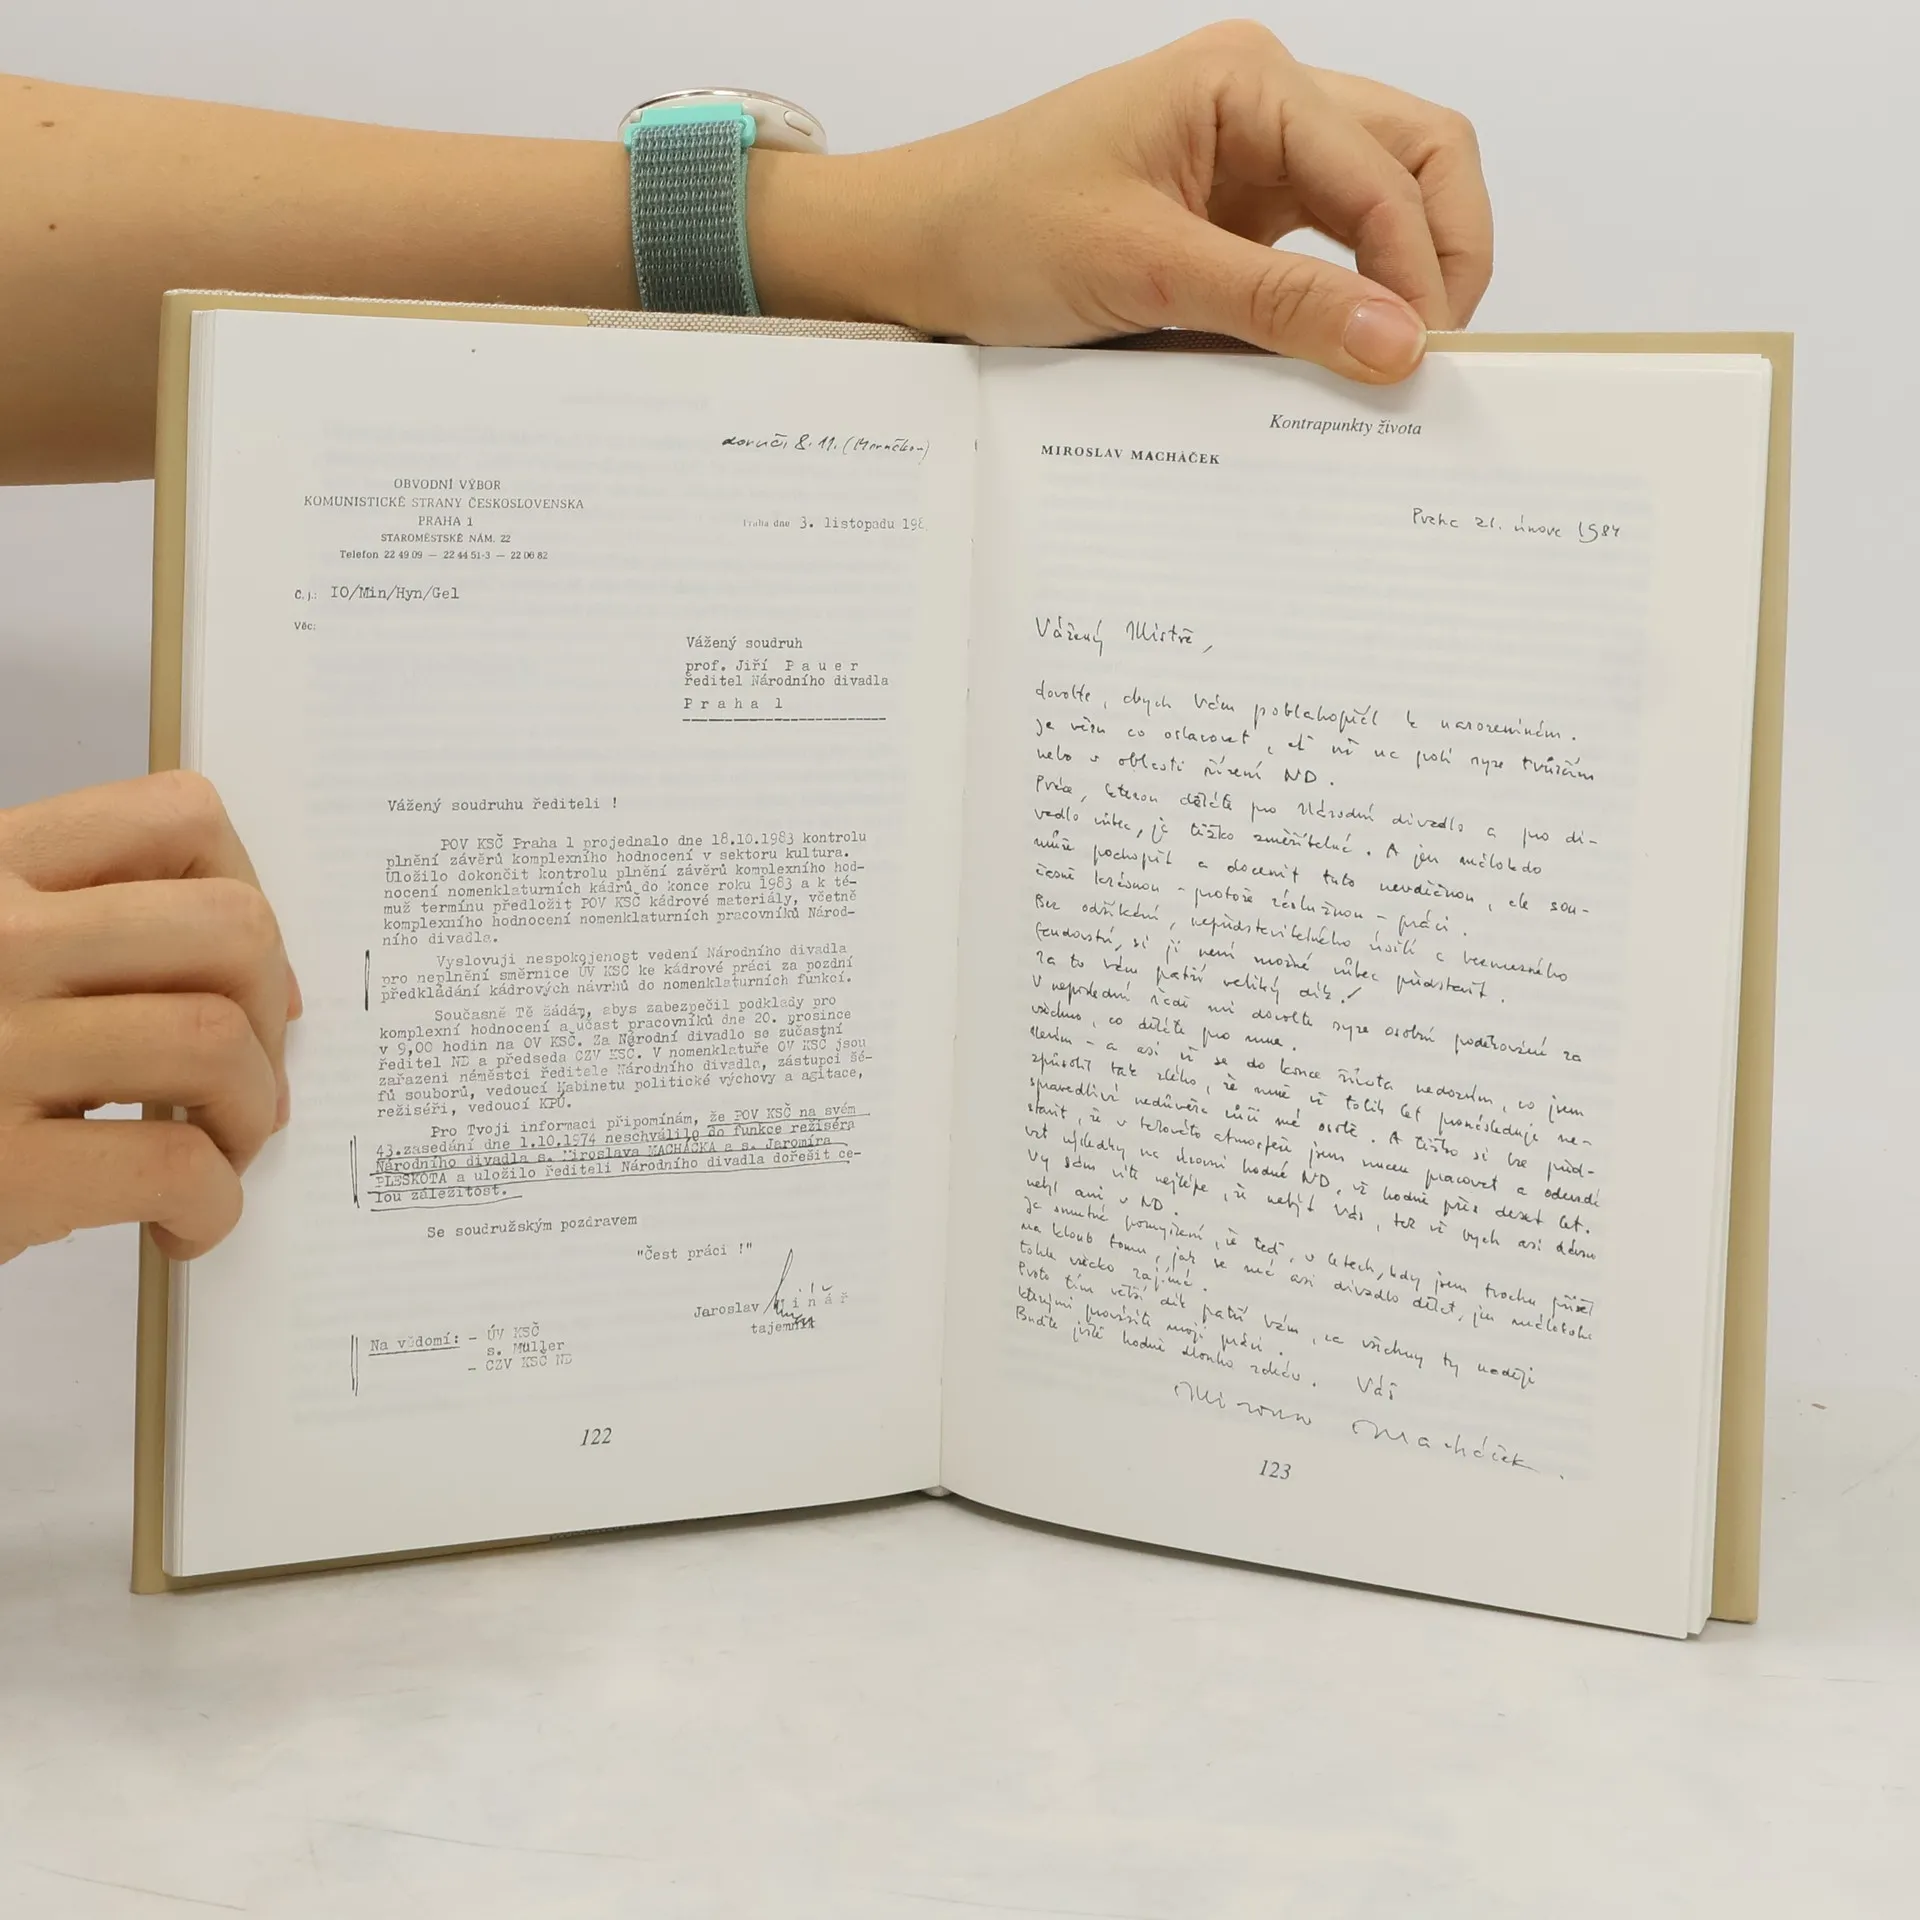 doruč. 8. 11.
OBVODNÍ VÝBOR
KOMUNISTICKÉ STRANY ČESKOSLOVENSKA
PRAHA 1
STAROMĚSTSKÉ NÁM. 22
Telefon 22 49 09 — 22 44 51-3 — 22 06 82
Praha dne 3. listopadu 198
Č. j.: IO/Min/Hyn/Gel
Věc:
Vážený soudruh
prof. Jiří P a u e r
ředitel Národního divadla
P r a h a 1
Vážený soudruhu řediteli !
POV KSČ Praha 1 projednalo dne 18.10.1983 kontrolu
plnění závěrů komplexního hodnocení v sektoru kultura.
Uložilo dokončit kontrolu plnění závěrů komplexního hod-
nocení nomenklaturních kádrů do konce roku 1983 a k té-
muž termínu předložit POV KSČ kádrové materiály, včetně
komplexního hodnocení nomenklaturních pracovníků Národ-
ního divadla.
Vyslovuji nespokojenost vedení Národního divadla
pro neplnění směrnice ÚV KSČ ke kádrové práci za pozdní
předkládání kádrových návrhů do nomenklaturních funkcí.
Současně Tě žádám, abys zabezpečil podklady pro
komplexní hodnocení a účast pracovníků dne 20. prosince
v 9,00 hodin na OV KSČ. Za Národní divadlo se zúčastní
ředitel ND a předseda CZV KSČ. V nomenklatuře OV KSČ jsou
zařazeni náměstci ředitele Národního divadla, zástupci šé-
fů souborů, vedoucí Kabinetu politické výchovy a agitace,
režiséři, vedoucí KPÚ.
Pro Tvoji informaci připomínám, že POV KSČ na svém
43.zasedání dne 1.10.1974 neschválilo do funkce režiséra
Národního divadla s. Miroslava MACHÁČKA a s. Jaromíra
PLESKOTA a uložilo řediteli Národního divadla dořešit ce-
lou záležitost.
Se soudružským pozdravem
"Čest práci !"
Jaroslav M i n á ř
tajemník
Na vědomí: – ÚV KSČ
s. Müller
– CZV KSČ ND
122
Kontrapunkty života
MIROSLAV MACHÁČEK
Praha 21. února 1984
Vážený Mistře,
dovolte, abych Vám poblahopřál k narozeninám.
Je věru co oslavovat, ať už na poli ryze tvůrčím
nebo v oblasti řízení ND.
Práce, kterou děláte pro Národní divadlo a pro di-
vadlo vůbec, je těžko změřitelná. A jen málokdo
může pochopit a docenit tuto nevděčnou, ale sou-
časně krásnou – protože záslužnou – práci.
Bez odříkání, nepředstavitelného úsilí a bezmezného
fandovství, si ji není možné vůbec představit.
Za to vám patří veliký dík!
V neposlední řadě mi dovolte ryze osobní poděkování za
všechno, co děláte pro mne.
Nevím – a asi už se do konce života nedozvím, co jsem
způsobil tak zlého, že mně už tolik let pronásleduje ne-
spravedlivá nedůvěra vůči mé osobě. A těžko si lze před-
stavit, že v takovéto atmosféře jsem musel pracovat a odevzdá-
vat výsledky na úrovni hodné ND, už hodně přes deset let.
Vy sám víte nejlépe, že nebýt Vás, tak už bych asi dávno
nebyl ani v ND.
Je smutné pomyšlení, že teď, v letech, kdy jsem trochu přišel
na kloub tomu, jak se má asi divadlo dělat, jen málokoho
tohle všecko zajímá.
Proto tím větší dík patří Vám, za všechny ty naděje
kterými provázíte moji práci.
Buďte ještě hodně dlouho zdráv. Váš
Miroslav Macháček.
123